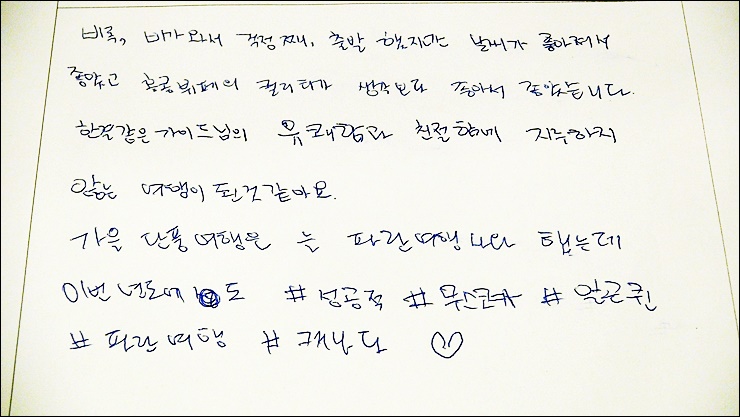 비록, 비가 와서 걱정 했지, 출발 했지만 날씨가 좋아져서
좋았고 홍콩뷔페의 퀄리티가 생각보다 좋아서 좋았습니다.
한결같은 가이드님의 유쾌함과 친절함에 지루하지
않는 여행이 된것 같아요.
가을 단풍여행은 늘 파란여행
이번년도에도 #성공적 #무스코카 #알곤퀸
#파란여행 #캐나다 ♡